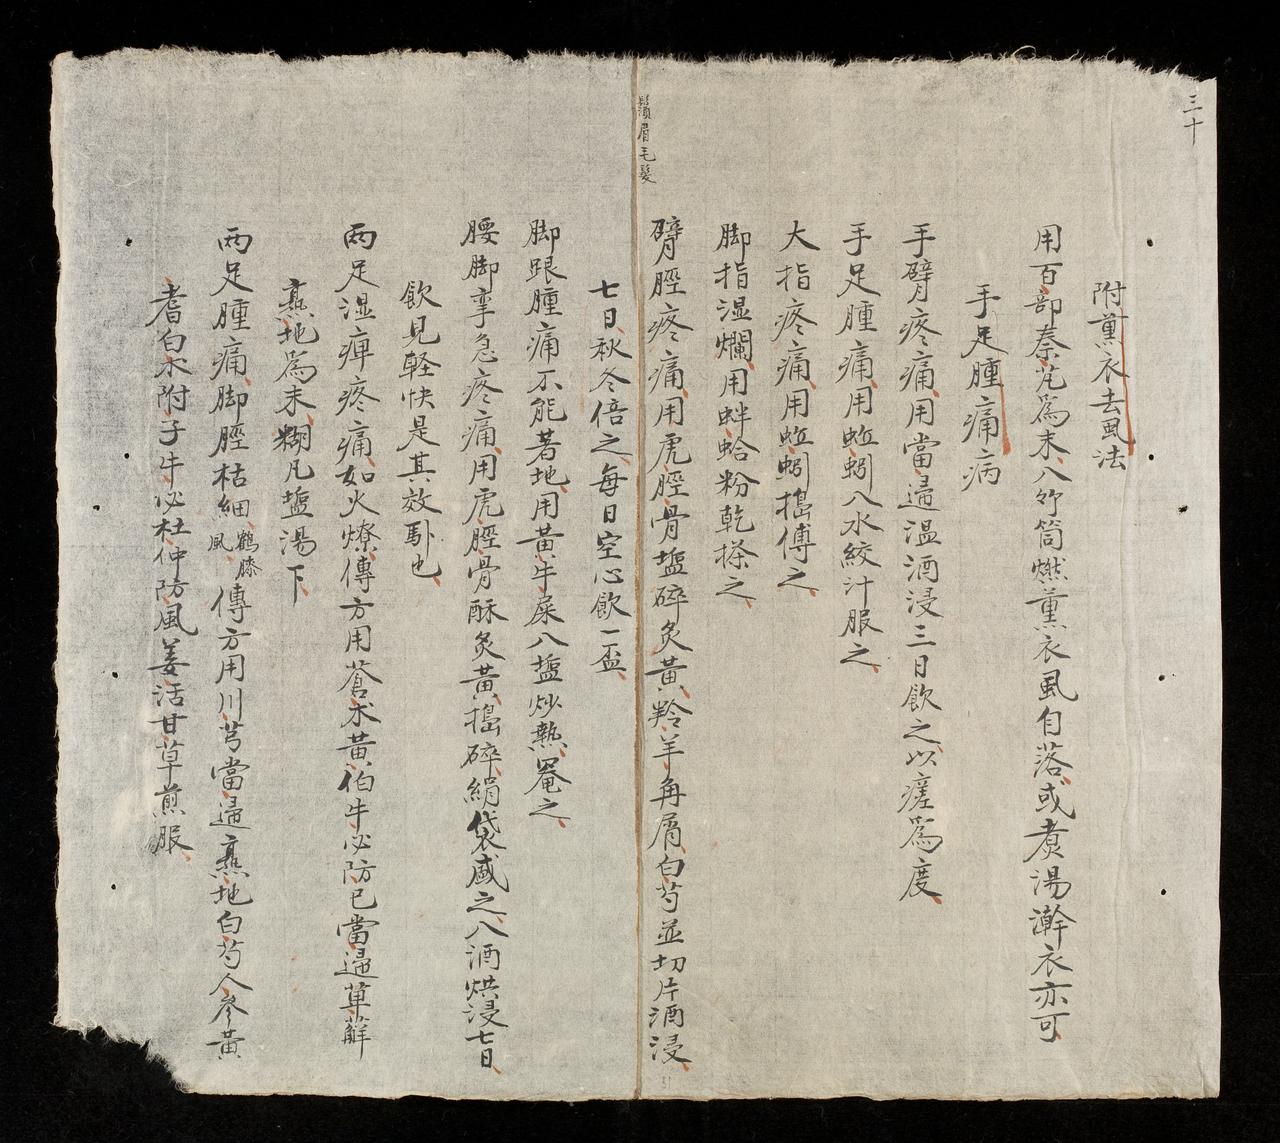 三十
附薰衣去虱法
用百部秦艽為末入竹筒燃薰衣虱自落或煑湯澣衣亦可
手足腫痛病
手臂疼痛用當歸温酒浸三日飲之以瘥為度
手足腫痛用蚯蚓入水絞汁服之
大指疼痛用蚯蚓搗傅之
脚指湿爛用蚌蛤粉乾搽之
臂脛疼痛用虎脛骨塩碎炙黃羚羊角屑白芍並切片酒浸
鬚眉毛髮
七日秋冬倍之每日空心飲一盃
脚跟腫痛不能著地用黃牛屎入塩炒熱罨之
腰脚挛急疼痛用虎脛骨酥炙黃搗碎絹袋盛之入酒烘浸七日
飲見軽快是其效馱也
两足湿痺疼痛如火燎傳方用蒼朮黃伯牛必防已當歸萆薢
熟地為末糊凡塩湯下
两足腫痛脚脛枯細鶴膝風傳方用川芎當歸熟地白芍人參黃
耆白朮附子牛必杜仲防風羗活甘草煎服